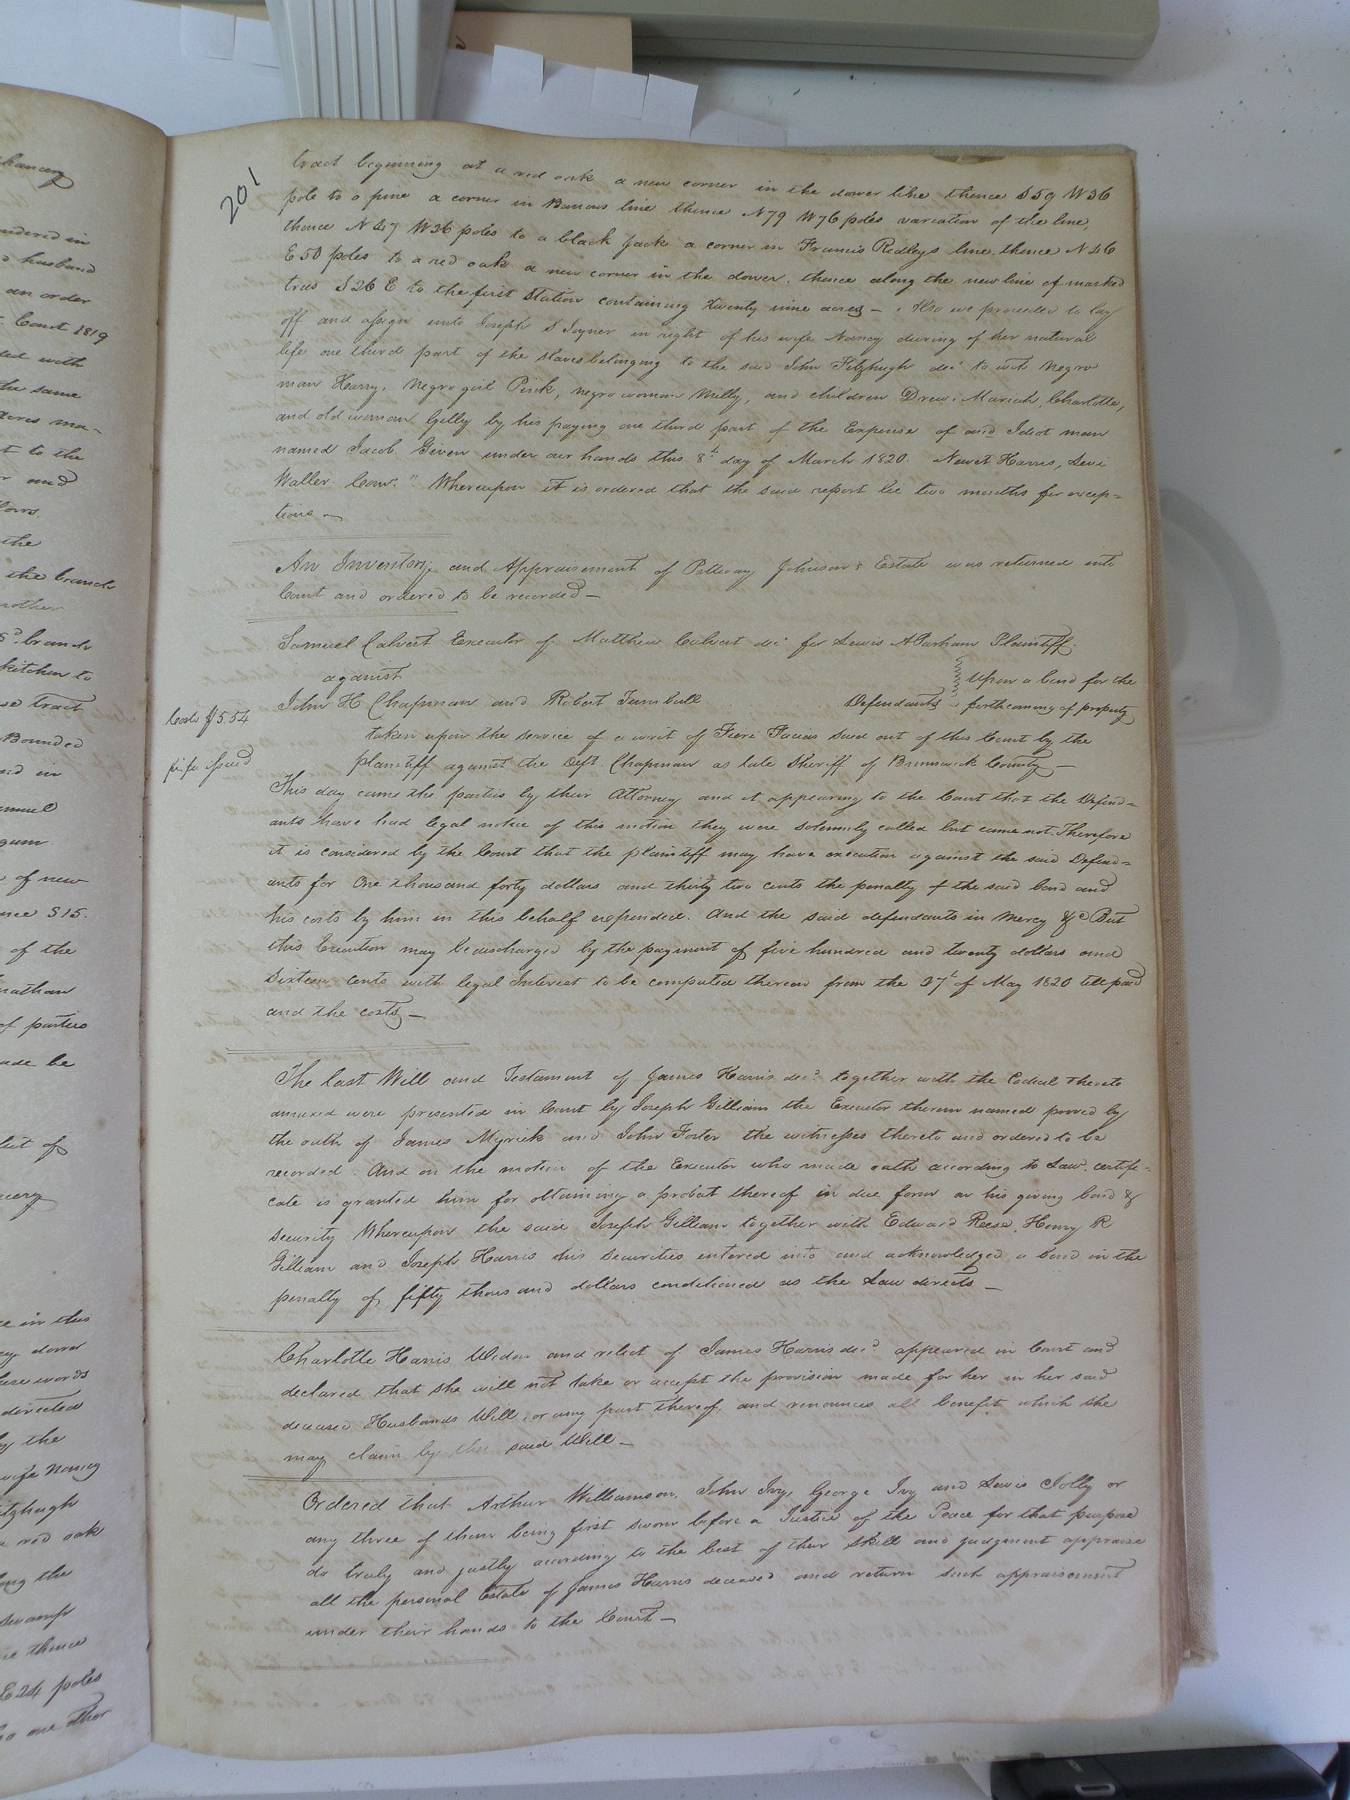 201
tract beginning at a red oak a new corner in the dower line thence S59 W36
pole to a pine a corner in Barrows line thence N79 W76 poles variation of the line,
thence N47 W36 poles to a black Jack a corner in Francis Ridleys line, thence N46
E50 poles to a red oak a new corner in the dower, thence along the new line of marked
trees S26 E to the first Station containing twenty nine acres — Also we proceeded to lay
off and assign unto Joseph S Joyner in right of his wife Nancy during of her natural
life one third part of the slaves belonging to the said John Fitzhugh decd to wit Negro
man Harry, Negro girl Pink, negro woman Milly, and children Drew, Mariah, Charlotte,
and old woman Gilly by his paying one third part of the Expense of and Idiot man
named Jacob Given under our hands this 8th day of March 1820. Newit Harris, Levi
Waller Comr." Whereupon it is ordered that the said report lie two months for excep=
tions —
An Inventory and Appraisement of Johnson's Estate was returned into
Court and ordered to be recorded —
Samuel Calvert Executor of Matthew Calvert decd for Lewis A Parham Plaintiff
against
Upon a bond for the
John H Chapman and Robert Turnbull Defendants forthcoming of property
Costs $5.54
taken upon the service of a writ of Fieri Facias sued out of this Court by the
plaintiff against the Deft. Chapman as late Sheriff of Brunswick County —
fi fa issued
This day came the parties by their Attorney and it appearing to the Court that the Defend=
ants have had legal notice of this motion they were solemnly called but came not. Therefore
it is considered by the Court that the plaintiff may have execution against the said Defend=
ants for One thousand forty dollars and thirty two cents the penalty of the said bond and
his costs by him in this behalf expended. And the said defendants in Mercy &c But
this Execution may be discharged by the payment of five hundred and twenty dollars and
Sixteen cents with legal Interest to be computed thereon from the 27th of May 1820 till paid
and the costs —
The last Will and Testament of James Harris decd together with the Codicil thereto
annexed were presented in Court by Joseph Gilliam the Executor therein named proved by
the oath of James Myrick and John Foster the witnesses thereto and ordered to be
recorded. And on the motion of the Executor who made oath according to Law certifi=
cate is granted him for obtaining a probat thereof in due form on his giving bond &
security Whereupon the said Joseph Gilliam together with Edward Reese, Henry R
Gilliam and Joseph Harris his securities entered into and acknowledged a bond in the
penalty of fifty thousand dollars conditioned as the Law directs —
Charlotte Harris Widow and relict of James Harris decd appeared in Court and
declared that she will not take or accept the provision made for her in her said
deceased Husbands Will, or any part thereof, and renounces all benefit which she
may claim by the said Will —
Ordered that Arthur Williamson, John Ivy, George Ivy and Lewis Jolly or
any three of them being first sworn before a Justice of the Peace for that purpose
do truly and justly according to the best of their skill and judgment appraise
all the personal Estate of James Harris deceased and return such appraisement
under their hands to the Court —